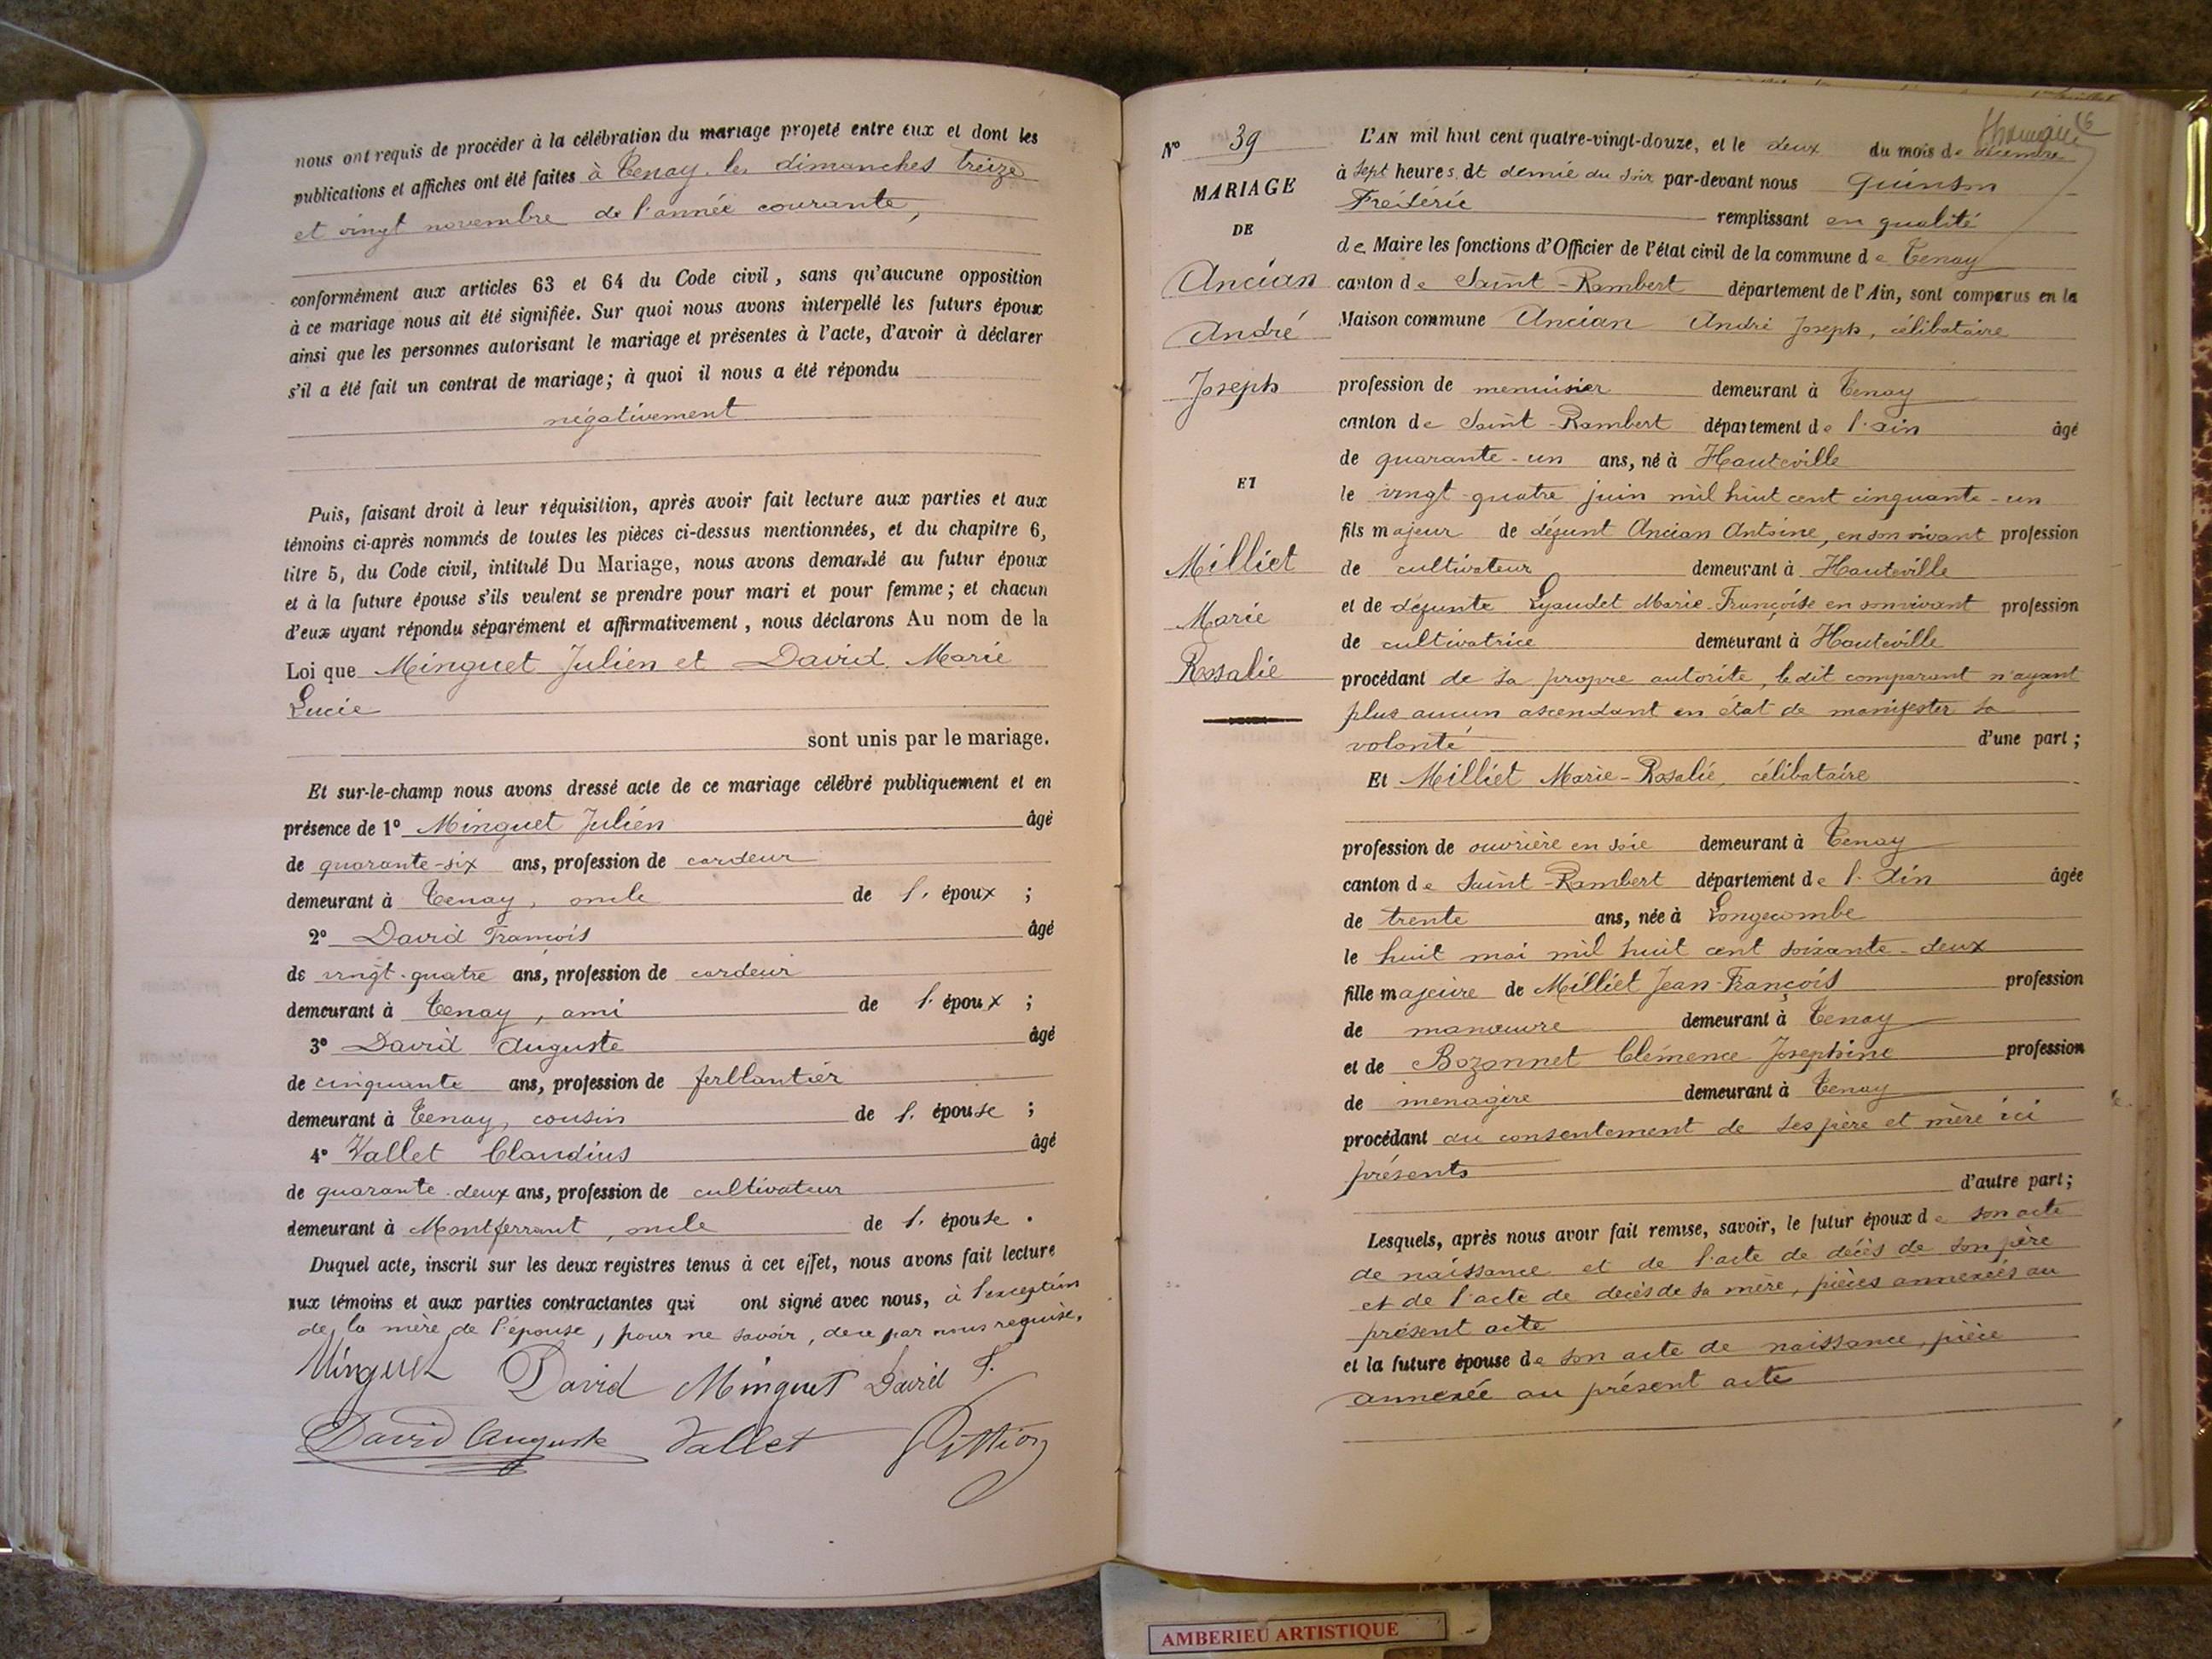 nous ont requis de procéder à la célébration du mariage projeté entre eux et dont les
publications et affiches ont été faites à Tenay les dimanches treize
et vingt novembre de l'année courante,
conformément aux articles 63 et 64 du Code civil, sans qu'aucune opposition
à ce mariage nous ait été signifiée. Sur quoi nous avons interpellé les futurs époux
ainsi que les personnes autorisant le mariage et présentes à l'acte, d'avoir à déclarer
s'il a été fait un contrat de mariage; à quoi il nous a été répondu
négativement
Puis, faisant droit à leur réquisition, après avoir fait lecture aux parties et aux
témoins ci-après nommés de toutes les pièces ci-dessus mentionnées, et du chapitre 6,
titre 5, du Code civil, intitulé Du Mariage, nous avons demandé au futur époux
et à la future épouse s'ils veulent se prendre pour mari et pour femme; et chacun
d'eux ayant répondu séparément et affirmativement, nous déclarons Au nom de la
Loi que Minguet Julien et David Marie
Lucie
sont unis par le mariage.
Et sur-le-champ nous avons dressé acte de ce mariage célébré publiquement et en
présence de 1° Minguet Julien âgé
de quarante-six ans, profession de cardeur
demeurant à Tenay, oncle de l'époux ;
2° David François âgé
de vingt-quatre ans, profession de cardeur
demeurant à Tenay, ami de l'époux ;
3° David Auguste âgé
de cinquante ans, profession de ferblantier
demeurant à Tenay, cousin de l'épouse ;
4° Vallet Claudius âgé
de quarante-deux ans, profession de cultivateur
demeurant à Montferrant, oncle de l'épouse .
Duquel acte, inscrit sur les deux registres tenus à cet effet, nous avons fait lecture
aux témoins et aux parties contractantes qui ont signé avec nous, à l'exception
de la mère de l'épouse, pour ne savoir, de ce par nous requise.
Minguet David Minguet David F.
David Auguste Vallet
N° 39
MARIAGE
DE
Ancian
André
Joseph
ET
Milliet
Marie
Rosalie
L'AN mil huit cent quatre-vingt-douze, et le deux du mois de décembre
à sept heures et demie du soir par-devant nous Quinson
Frédéric remplissant en qualité
de Maire les fonctions d'Officier de l'état civil de la commune de Tenay
canton de Saint-Rambert département de l'Ain, sont comparus en la
Maison commune Ancian André Joseph, célibataire
profession de menuisier demeurant à Tenay
canton de Saint-Rambert département de l'ain âgé
de quarante-un ans, né à Hauteville
le vingt-quatre juin mil huit cent cinquante-un
fils majeur de défunt Ancian Antoine, en son vivant profession
de cultivateur demeurant à Hauteville
et de défunte Lyaudet Marie-Françoise en son vivant profession
de cultivatrice demeurant à Hauteville
procédant de sa propre autorité, le dit comparant n'ayant
plus aucun ascendant en état de manifester sa
volonté d'une part;
Et Milliet Marie-Rosalie, célibataire
profession de ouvrière en soie demeurant à Tenay
canton de Saint-Rambert département de l'Ain âgée
de trente ans, née à Longecombe
le huit mai mil huit cent soixante-deux
fille majeure de Milliet Jean-François profession
de manœuvre demeurant à Tenay
et de Bozonnet Clémence Josephine profession
de ménagère demeurant à Tenay
procédant du consentement de ses père et mère ici
présents
d'autre part;
Lesquels, après nous avoir fait remise, savoir, le futur époux de son acte
de naissance et de l'acte de décès de son père
et de l'acte de décès de sa mère, pièces annexées au
présent acte
et la future épouse de son acte de naissance, pièce
annexée au présent acte
AMBERIEU ARTISTIQUE